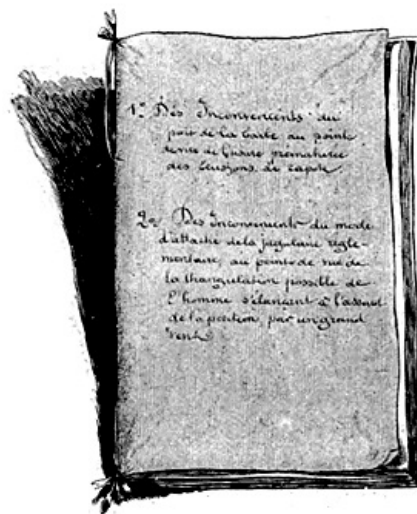 1º Des Inconvénients du
port de la barbe au point
de vue de l'usure prématurée
des écussons de capote
2º Des Inconvénients du mode
d'attache de la jugulaire régle-
mentaire, au point de vue de
la strangulation possible de
l'homme s'élançant à l'assaut
de la position, par un grand
vent.